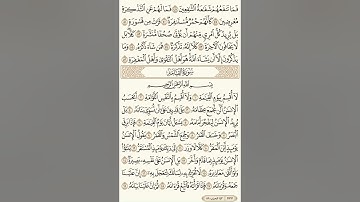 فَمَا تَنفَعُهُمْ شَفَٰعَةُ ٱلشَّٰفِعِينَ فَمَا لَهُمْ عَنِ ٱلتَّذْكِرَةِ
مُعْرِضِينَ كَأَنَّهُمْ حُمُرٌ مُّسْتَنفِرَةٌ فَرَّتْ مِن قَسْوَرَةٍ
بَلْ يُرِيدُ كُلُّ ٱمْرِئٍ مِّنْهُمْ أَن يُؤْتَىٰ صُحُفًا مُّنَشَّرَةً كَلَّا
بَل لَّا يَخَافُونَ ٱلْءَاخِرَةَ كَلَّآ إِنَّهُۥ تَذْكِرَةٌ فَمَن شَآءَ ذَكَرَهُۥ وَمَا
يَذْكُرُونَ إِلَّآ أَن يَشَآءَ ٱللَّهُ هُوَ أَهْلُ ٱلتَّقْوَىٰ وَأَهْلُ ٱلْمَغْفِرَةِ
سُورَةُ ٱلْقِيَامَةِ
بِسْمِ ٱللَّهِ ٱلرَّحْمَٰنِ ٱلرَّحِيمِ
لَآ أُقْسِمُ بِيَوْمِ ٱلْقِيَٰمَةِ وَلَآ أُقْسِمُ بِٱلنَّفْسِ ٱللَّوَّامَةِ أَيَحْسَبُ
ٱلْإِنسَٰنُ أَلَّن نَّجْمَعَ عِظَامَهُۥ بَلَىٰ قَٰدِرِينَ عَلَىٰٓ أَن نُّسَوِّىَ بَنَانَهُۥ
بَلْ يُرِيدُ ٱلْإِنسَٰنُ لِيَفْجُرَ أَمَامَهُۥ يَسْـَٔلُ أَيَّانَ يَوْمُ ٱلْقِيَٰمَةِ فَإِذَا
بَرِقَ ٱلْبَصَرُ وَخَسَفَ ٱلْقَمَرُ وَجُمِعَ ٱلشَّمْسُ وَٱلْقَمَرُ يَقُولُ ٱلْإِنسَٰنُ
يَوْمَئِذٍ أَيْنَ ٱلْمَفَرُّ كَلَّا لَا وَزَرَ إِلَىٰ رَبِّكَ يَوْمَئِذٍ ٱلْمُسْتَقَرُّ يُنَبَّؤُا۟
ٱلْإِنسَٰنُ يَوْمَئِذٍۭ بِمَا قَدَّمَ وَأَخَّرَ بَلِ ٱلْإِنسَٰنُ عَلَىٰ نَفْسِهِۦ بَصِيرَةٌ
وَلَوْ أَلْقَىٰ مَعَاذِيرَهُۥ لَا تُحَرِّكْ بِهِۦ لِسَانَكَ لِتَعْجَلَ بِهِۦٓ إِنَّ عَلَيْنَا
جَمْعَهُۥ وَقُرْءَانَهُۥ فَإِذَا قَرَأْنَٰهُ فَٱتَّبِعْ قُرْءَانَهُۥ ثُمَّ إِنَّ عَلَيْنَا بَيَانَهُۥ